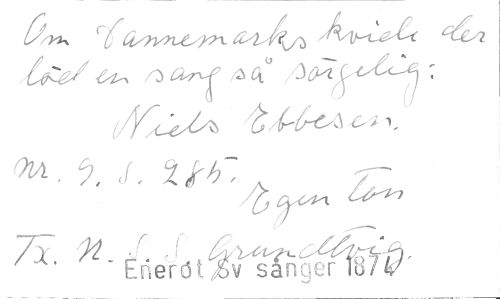 Om Dannemarks kvide der
löd en sang så sörgelig:
Niels Ebbesen.
Nr. 9. S. 285.
Egen ton
Tx. N. S. S. Grundtvig.
Enerot Sv sånger 1874